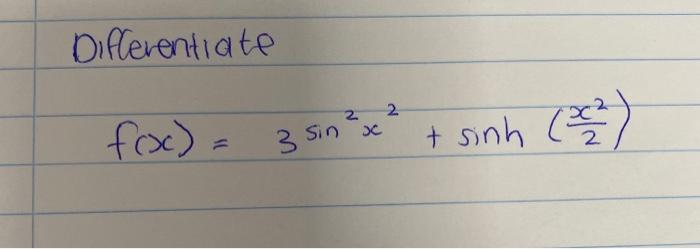 Differentiate
f(x) = 3 sin² x² + sinh (x²/2)